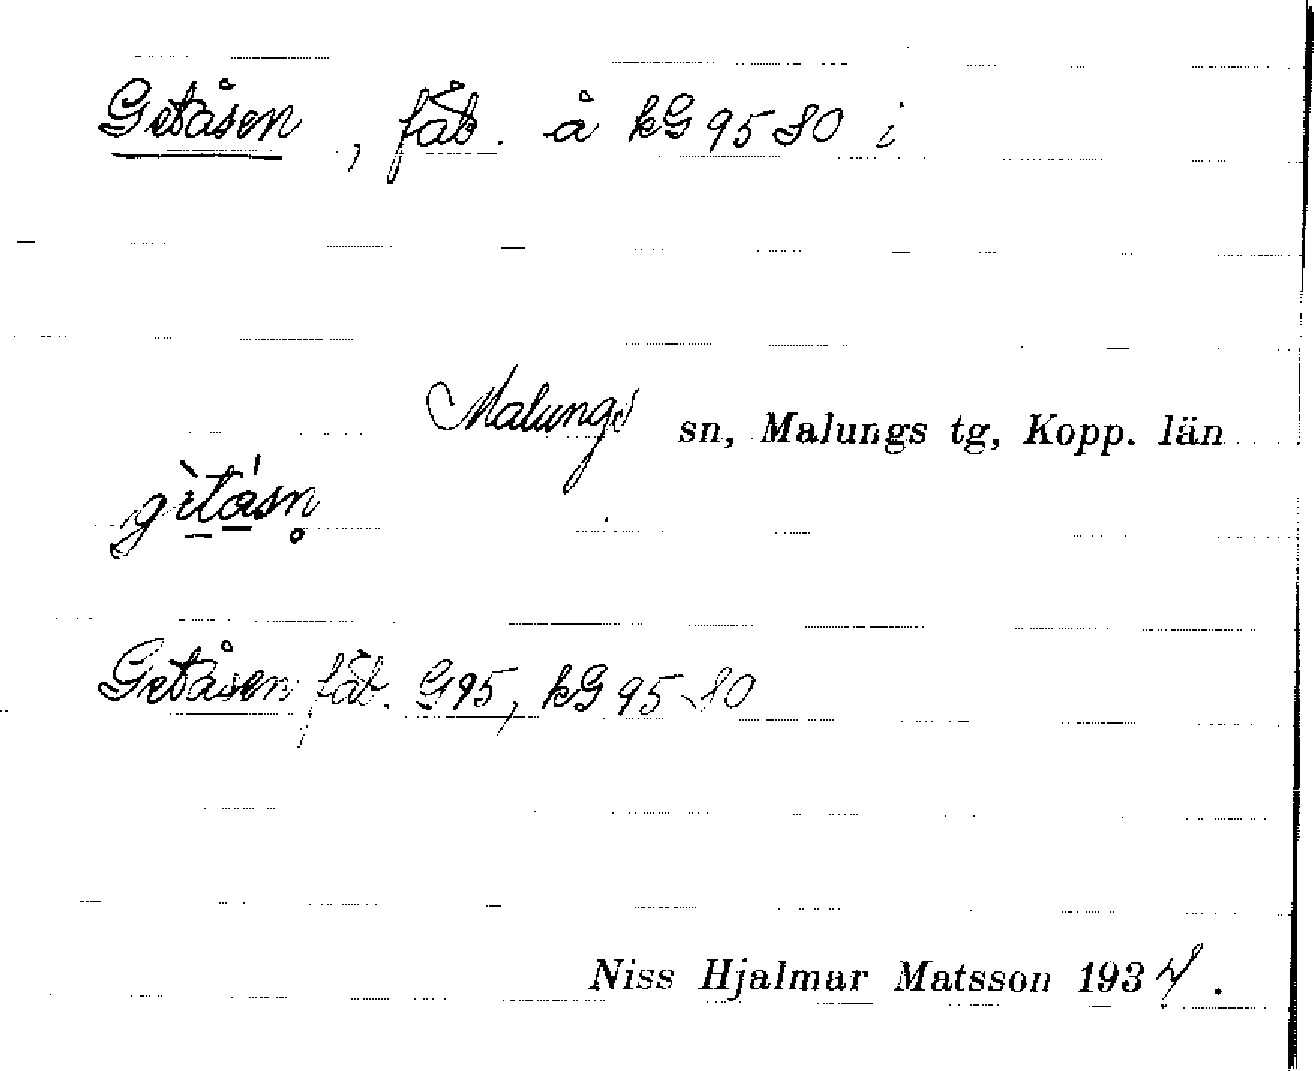 Getåsen, fäb. å kG 95 80 i
Malungs sn, Malungs tg, Kopp. län
gètásn̥
Getåsen, fäb. G95, kG 95 80
Niss Hjalmar Matsson 1934.